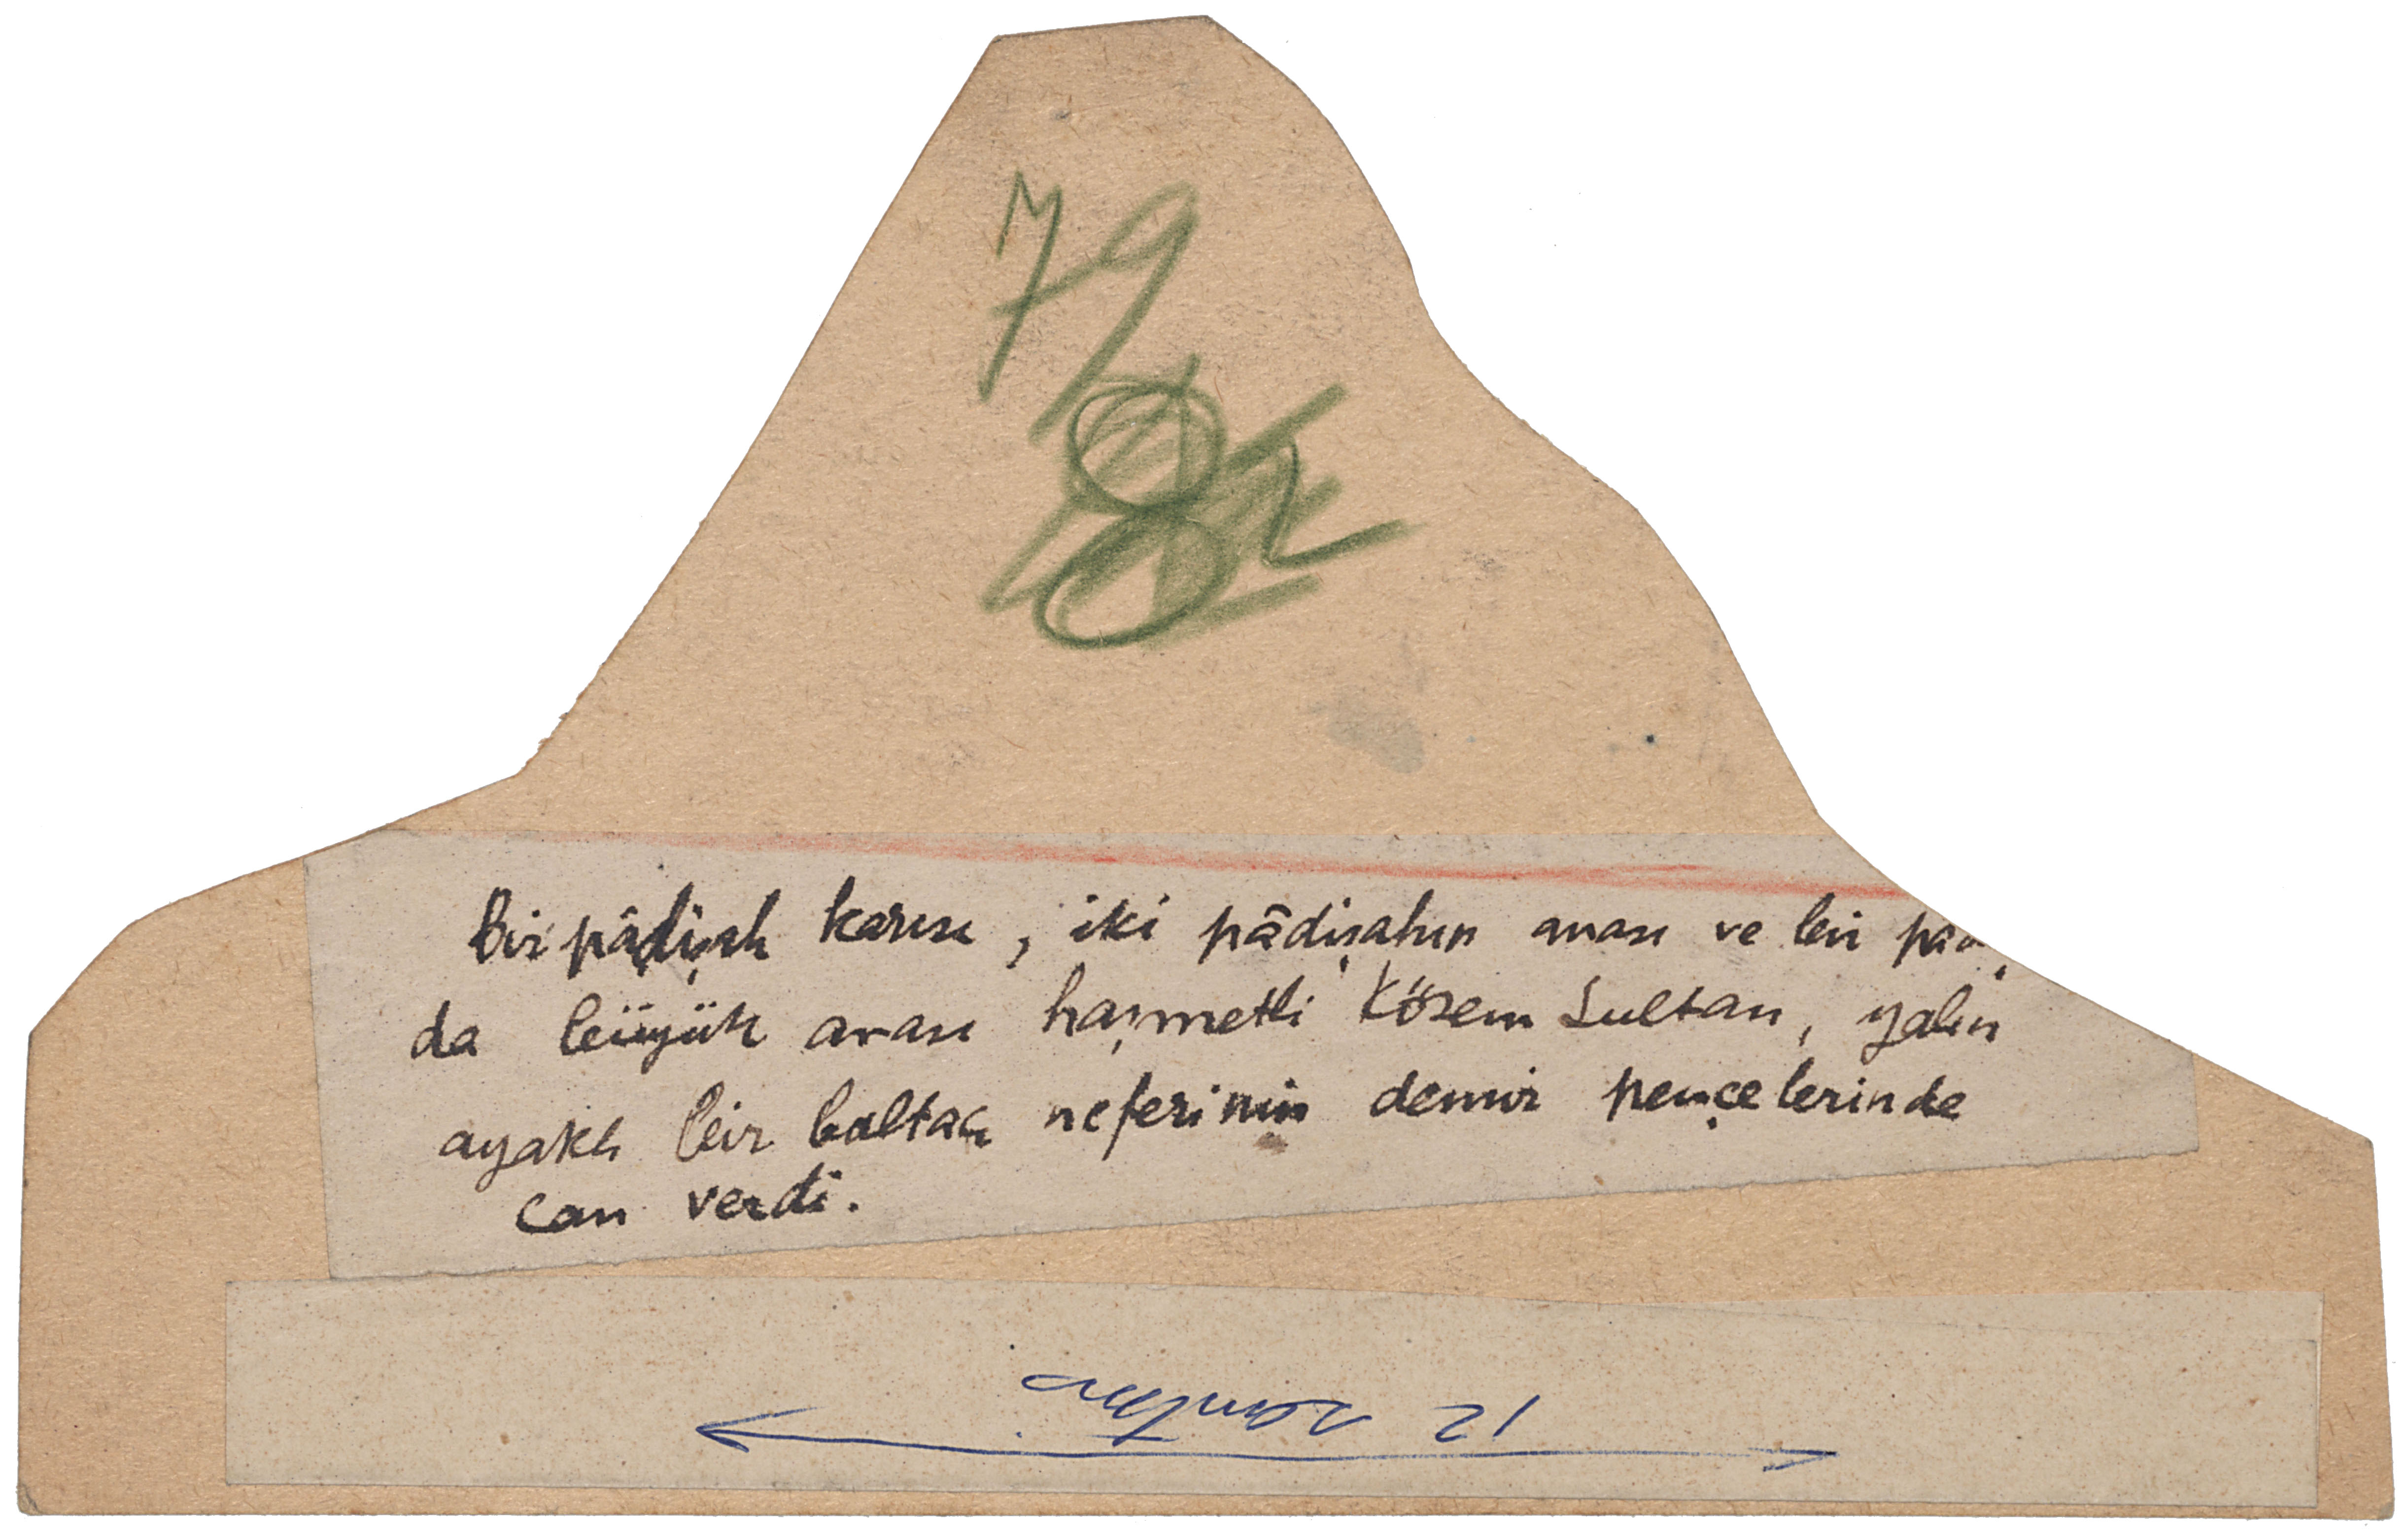 79
82
Bir pâdişah karısı, iki pâdişahın anası ve bir
da büyük anası haşmetli Kösem Sultan, yalın
ayaklı bir baltacı neferinin demir pençelerinde
can verdi.
12 santim